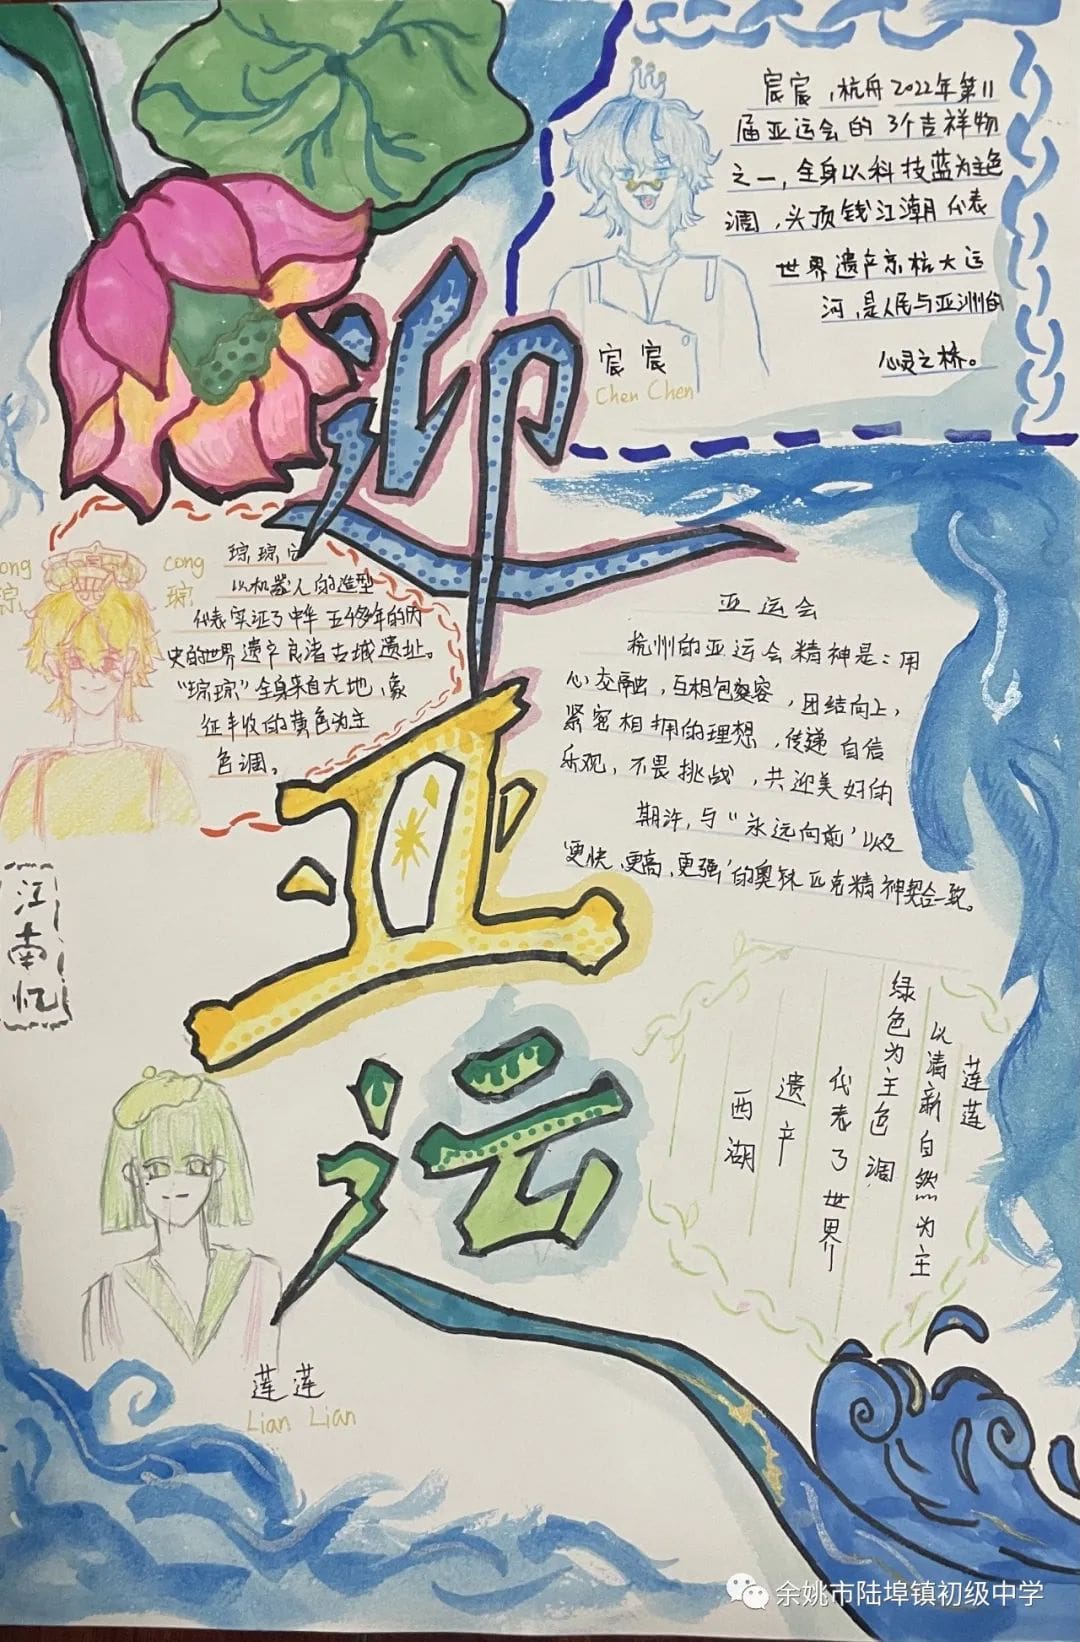 迎亚运
宸宸，杭舟2022年第11
届亚运会的3个吉祥物
之一，全身以科技蓝为主色
调，头顶钱江潮代表
世界遗产京杭大运
河，是人民与亚洲的
心灵之桥。
宸宸
Chen Chen
ong
琮
cong
琮
琮琮它
以机器人的造型
代表实证了中华五千多年的历
史的世界遗产良渚古城遗址。
“琮琮”全身来自大地、象
征丰收的黄色为主
色调。
亚运会
杭州的亚运会精神是：用
心交融，互相包容，团结向上，
紧密相拥的理想，传递自信
乐观，不畏挑战，共迎美好的
期许，与“永远向前’以及
‘更快、更高、更强’的奥林匹克精神契合一致。
江南忆
莲莲
以清新自然为主
绿色为主色调
代表了世界
遗产
西湖
莲莲
Lian Lian
余姚市陆埠镇初级中学